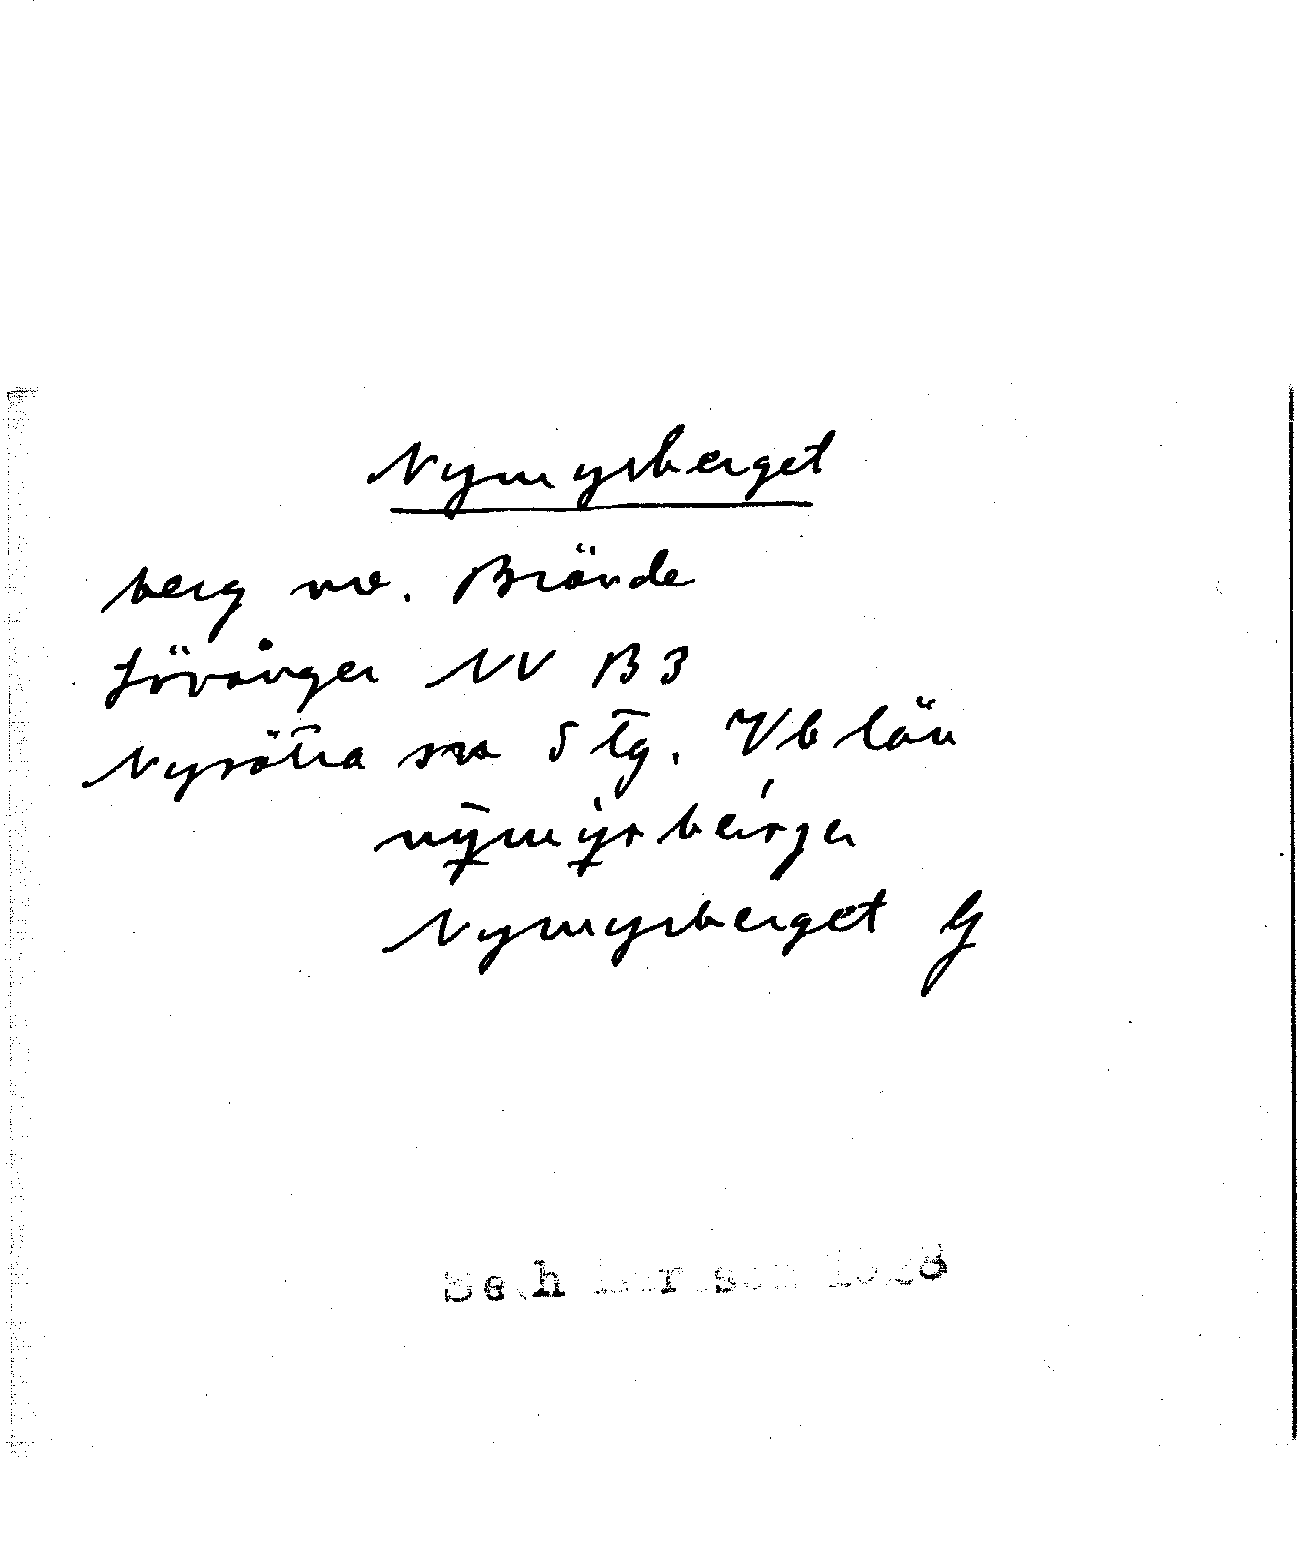 Nymyrberget
berg nv. Brände
Lövånger NV B3
Nysätra sn S tg. Vb län
nȳmy̆rbérjeɹ
Nymyrberget G
Seth Larsson